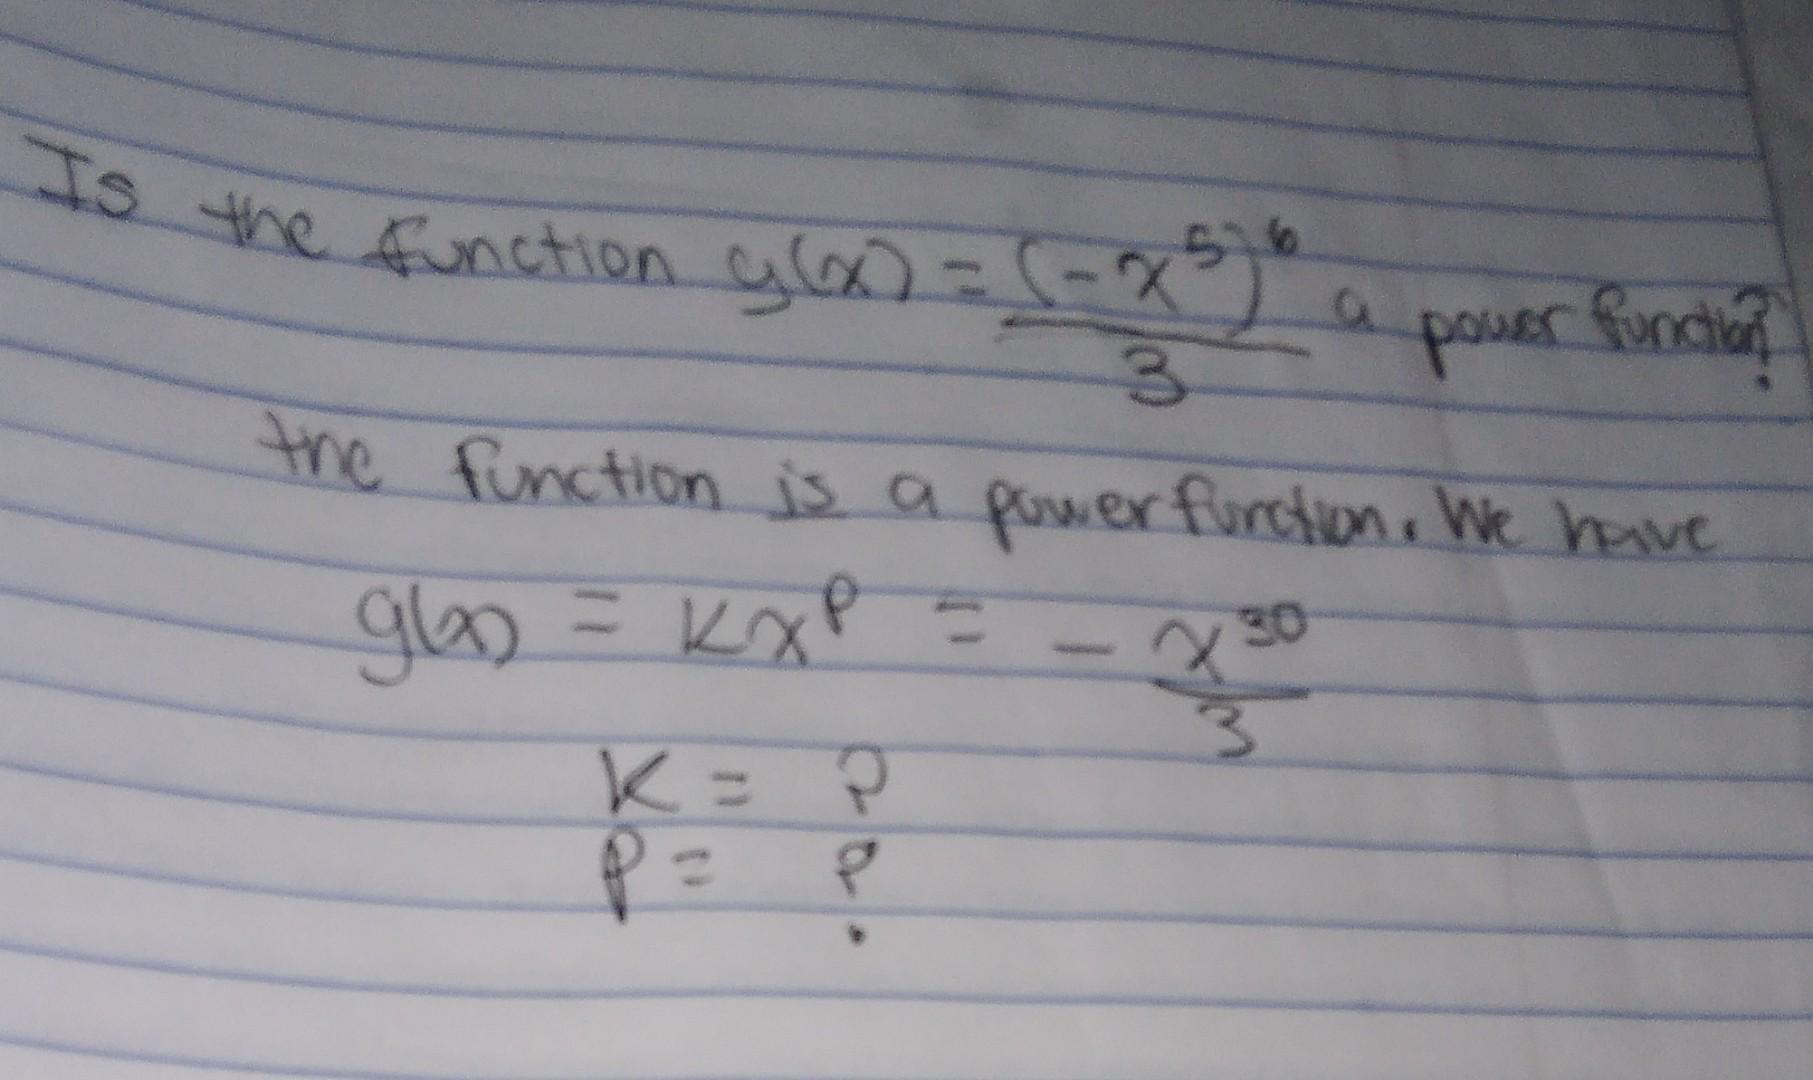 Is the function g(x) = (-x^5)^6 / 3 a power function?
the function is a power function. We have
g(x) = Kx^p = - x^30 / 3
K = ?
P = ?